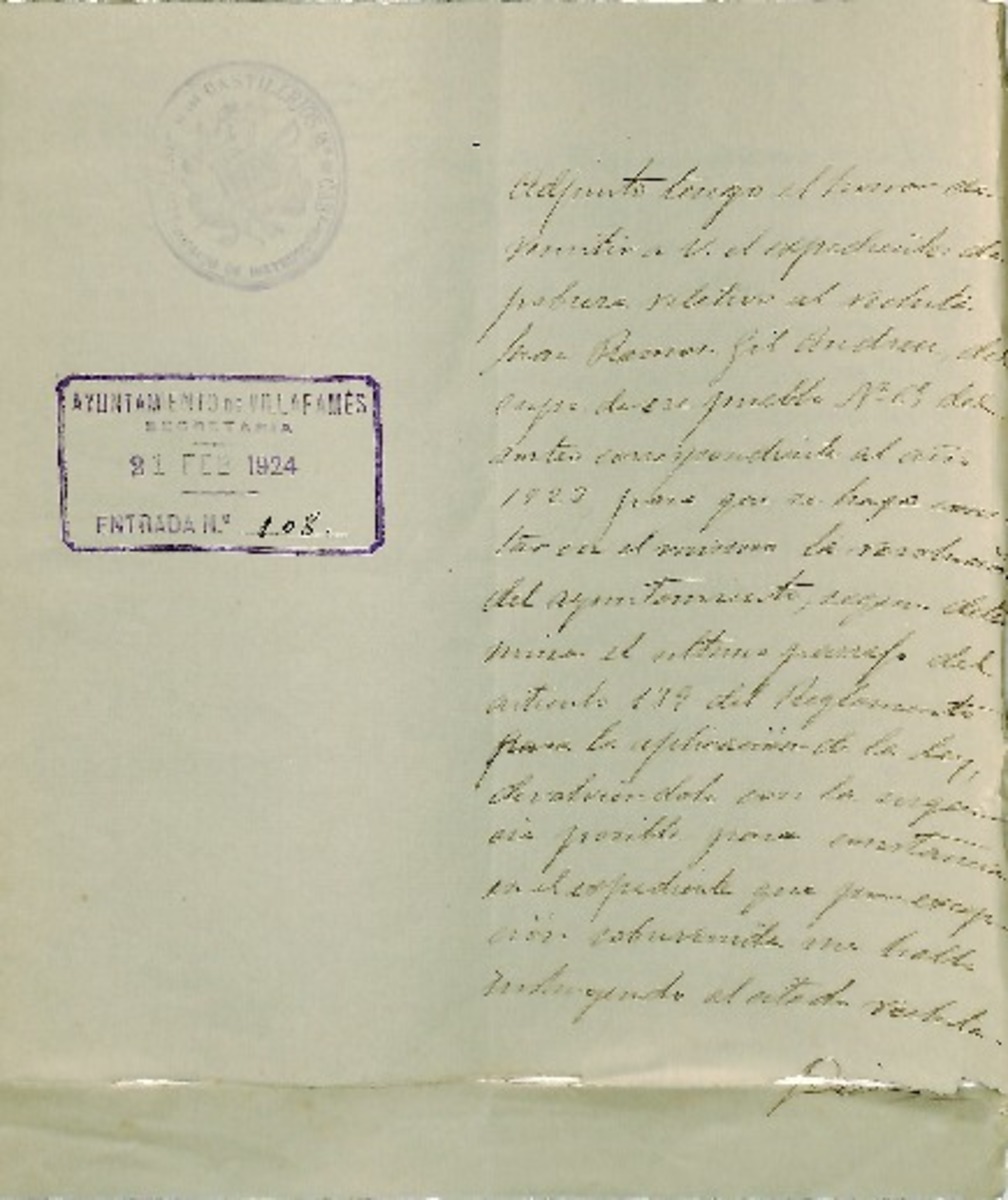 AYUNTAMIENTO DE VILLAFAMÉS
SECRETARIA
21 FEB 1924
ENTRADA N.º 108.
Adjunto tengo el honor de
remitir a V. el expediente de
pobreza relativo al recluta
Juan Ramon Gil Andreu, del
cupo de ese pueblo Nº del
sorteo correspondiente al año
1923 para que se haga cons
tar en el mismo la resolución
del ayuntamiento, segun deter
mina el ultimo parrafo del
articulo 199 del Reglamento
para la aplicación de la Ley,
devolviendole con la urgen
cia posible para constancia
en el expediente que por excep
ción sobrevenida me hallo
instruyendo al citado recluta.